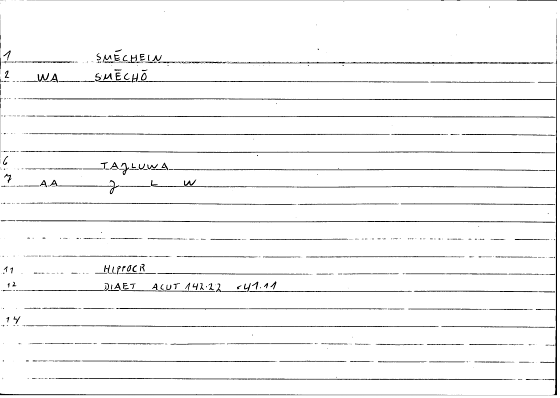 1 SMĒCHEIN
2 WA SMĒCHŌ
6 TAJLUWA
7 AA J L W
11 HIPPOCR
12 DIAET ACUT 142.22 41.11
14